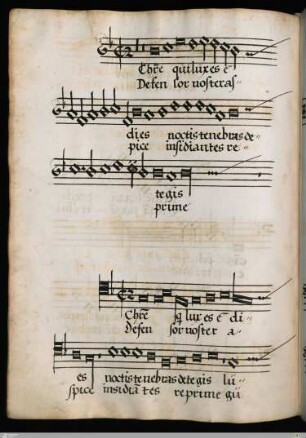 Chr̄e qui lux es ē
Defen sor noster as-
dies noctis tenebras de-
pice insidiantes re-
tegis
prime
Chr̄e q̄ lux es ē di
Defen sor noster a-
es noctis tenebras detegis lu-
spice insidiātes reprime gū